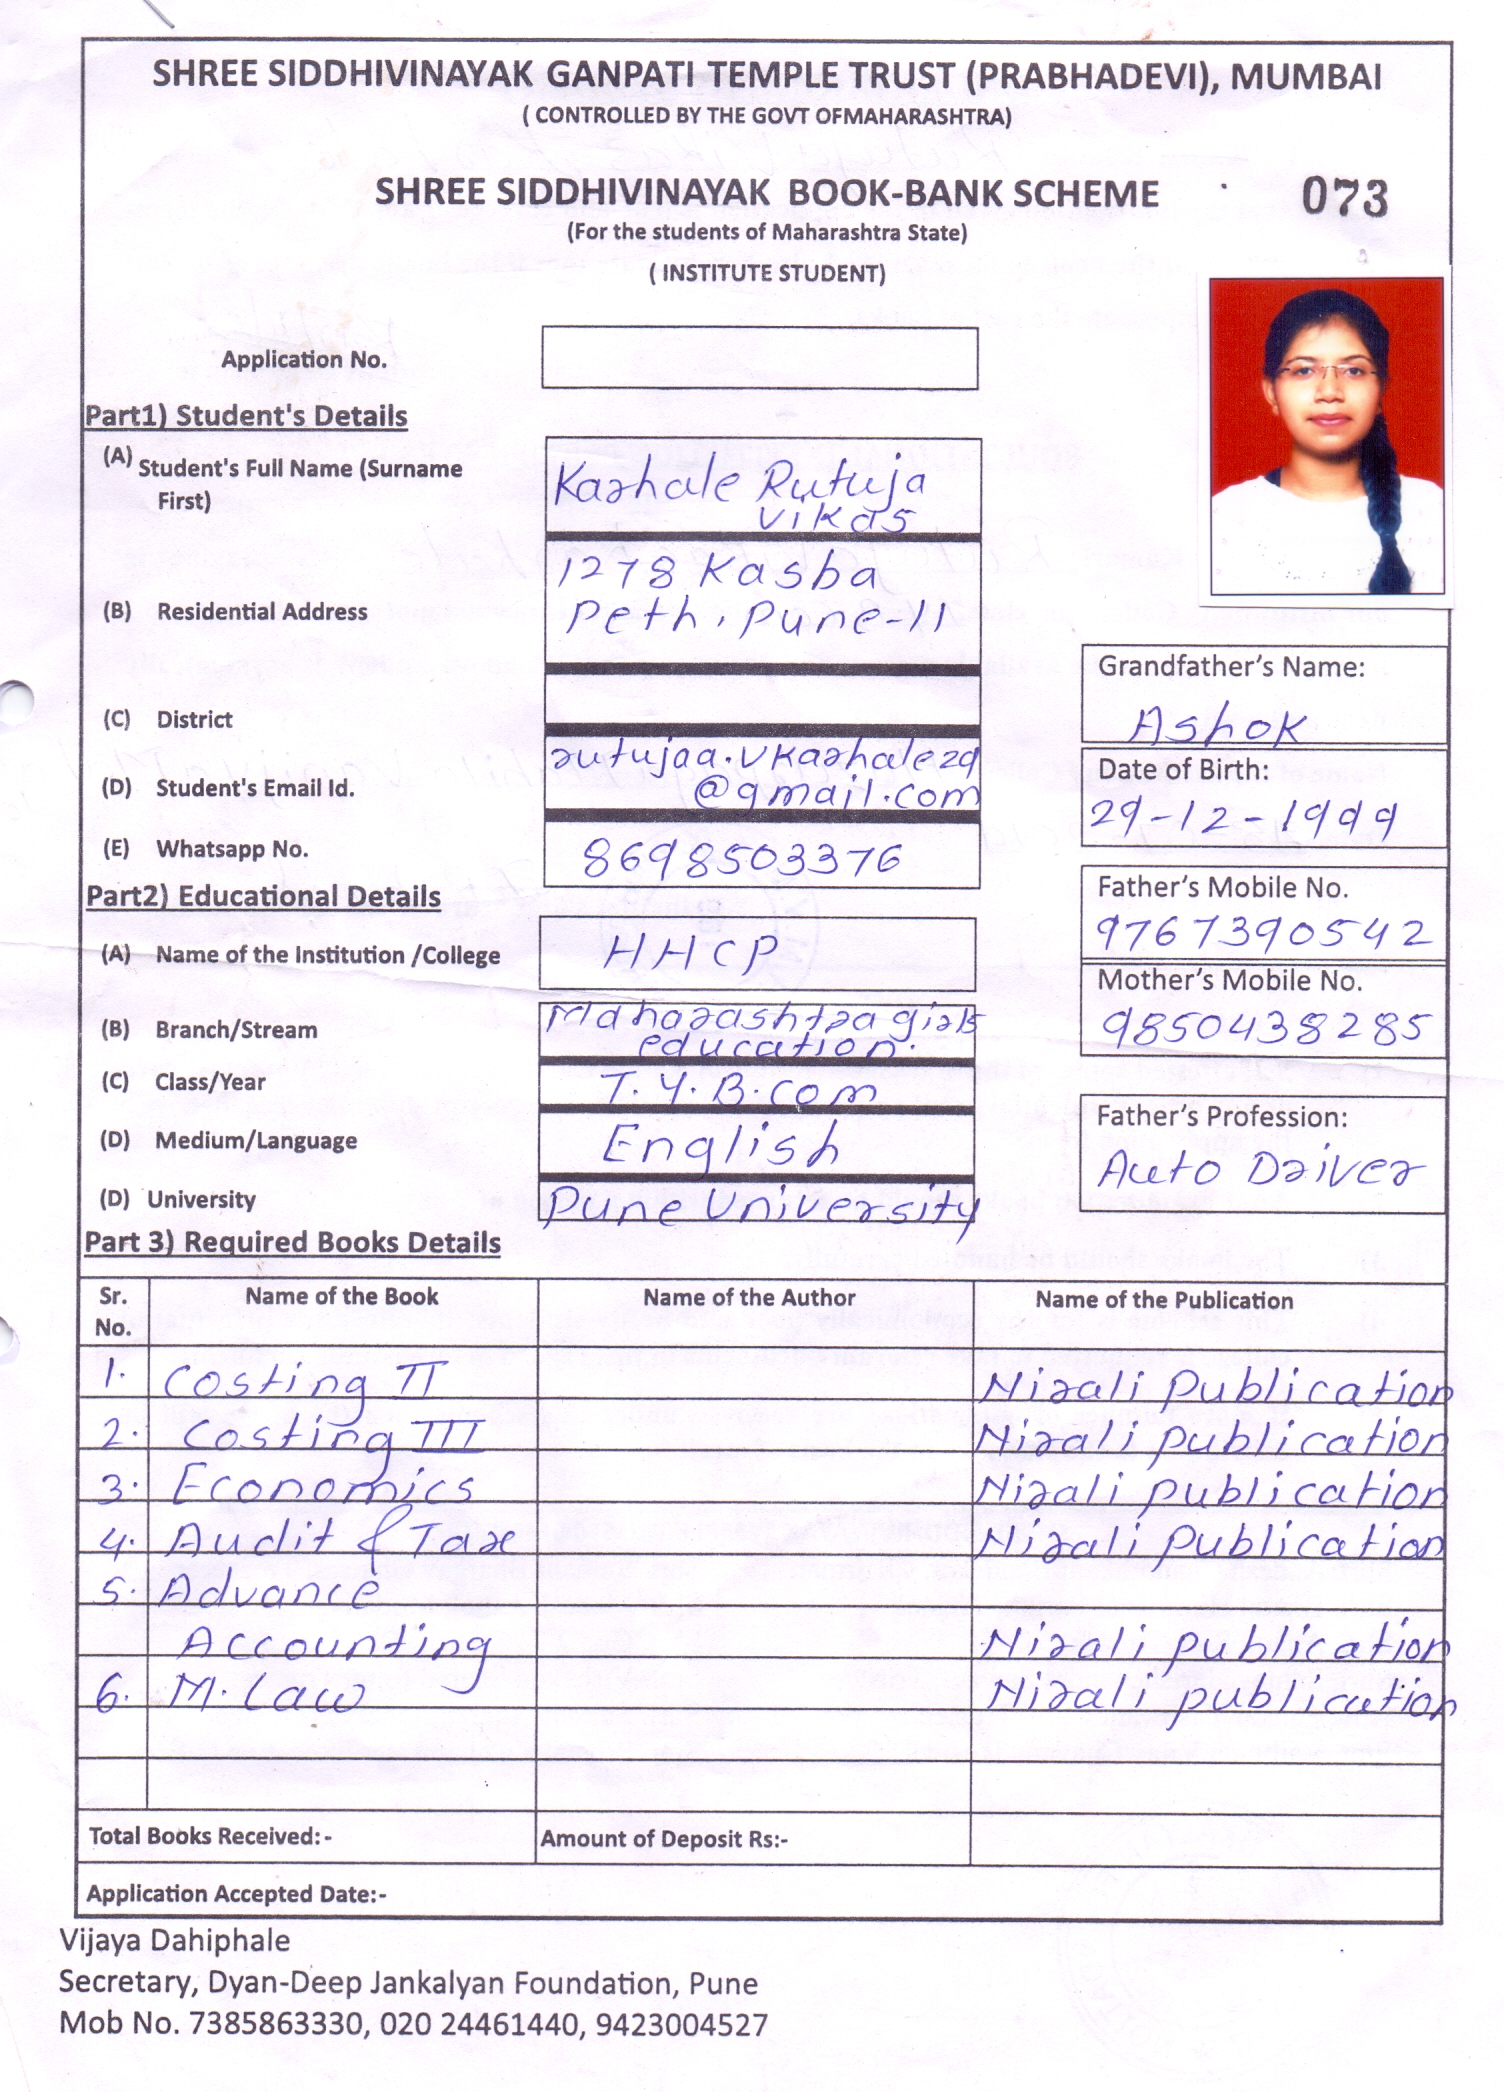 SHREE SIDDHIVINAYAK GANPATI TEMPLE TRUST (PRABHADEVI), MUMBAI
( CONTROLLED BY THE GOVT OFMAHARASHTRA)
SHREE SIDDHIVINAYAK BOOK-BANK SCHEME 073
(For the students of Maharashtra State)
( INSTITUTE STUDENT)
Application No.
Part1) Student's Details
(A) Student's Full Name (Surname
First)
Karhale Rutuja
Vikas
(B) Residential Address
1278 Kasba
Peth, Pune-11
Grandfather's Name:
Ashok
(C) District
(D) Student's Email Id.
rutujaa.vkarhale29
@gmail.com
Date of Birth:
29-12-1999
(E) Whatsapp No. 8698503376
Father's Mobile No.
9767390542
Part2) Educational Details
(A) Name of the Institution /College HHCP
Mother's Mobile No.
9850438285
(B) Branch/Stream
Maharashtra girls
education.
(C) Class/Year T.Y.B.com
(D) Medium/Language English
Father's Profession:
Auto Driver
(D) University Pune University
Part 3) Required Books Details
Sr.
No.
Name of the Book Name of the Author Name of the Publication
1. Costing II Nirali Publication
2. Costing III Nirali publication
3. Economics Nirali publication
4. Audit & Tax Nirali Publication
5. Advance
Accounting Nirali publication
6. M. Law Nirali publication
Total Books Received:- Amount of Deposit Rs:-
Application Accepted Date:-
Vijaya Dahiphale
Secretary, Dyan-Deep Jankalyan Foundation, Pune
Mob No. 7385863330, 020 24461440, 9423004527